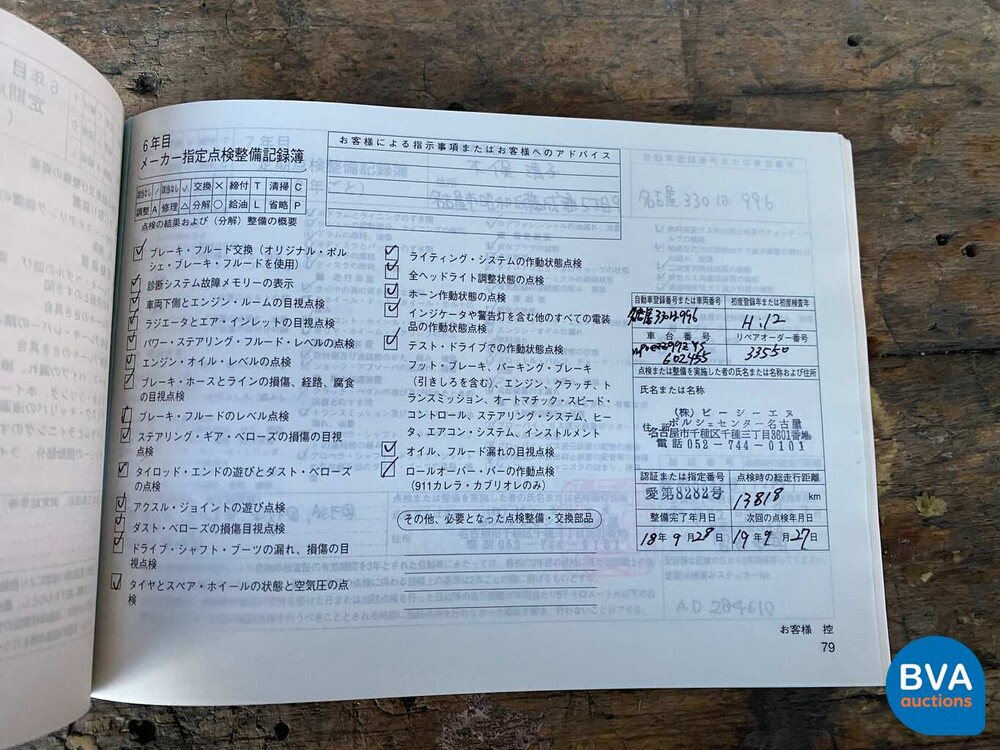 6年目
メーカー指定点検整備記録簿
お客様による指示事項またはお客様へのアドバイス
交換 × 締付 T 清掃 C
調整 A 修理 △ 分解 ○ 給油 L 省略 P
点検の結果および（分解）整備の概要
ブレーキ・フルード交換（オリジナル・ポル
シェ・ブレーキ・フルードを使用）
診断システム故障メモリーの表示
車両下側とエンジン・ルームの目視点検
ラジエータとエア・インレットの目視点検
パワー・ステアリング・フルード・レベルの点検
エンジン・オイル・レベルの点検
ブレーキ・ホースとラインの損傷、経路、腐食
の目視点検
ブレーキ・フルードのレベル点検
ステアリング・ギア・ベローズの損傷の目視
点検
タイロッド・エンドの遊びとダスト・ベローズ
の点検
アクスル・ジョイントの遊び点検
ダスト・ベローズの損傷目視点検
ドライブ・シャフト・ブーツの漏れ、損傷の目
視点検
タイヤとスペア・ホイールの状態と空気圧の点
検
ライティング・システムの作動状態点検
全ヘッドライト調整状態の点検
ホーン作動状態の点検
インジケータや警告灯を含む他のすべての電装
品の作動状態点検
テスト・ドライブでの作動状態点検
フット・ブレーキ、パーキング・ブレーキ
（引きしろを含む）、エンジン、クラッチ、ト
ランスミッション、オートマチック・スピード・
コントロール、ステアリング・システム、ヒー
タ、エアコン・システム、インストルメント
オイル、フルード漏れの目視点検
ロールオーバー・バーの作動点検
（911カレラ・カブリオレのみ）
その他、必要となった点検整備・交換部品
自動車登録番号または車両番号 初度登録年または初度検査年
名古屋330は996 H.12
車台番号 リペアオーダー番号
602455 33550
点検または整備を実施した者の氏名または名称および住所
氏名または名称
（株）ピーシーエヌ
ポルシェセンター名古屋
住所 名古屋市千種区千種三丁目3601番地
電話 052-744-0101
認証または指定番号 点検時の総走行距離
愛第8282号 13818 km
整備完了年月日 次回の点検年月日
18年 9月28日 19年 9月27日
AD 284610
お客様 控
79
BVA
auctions